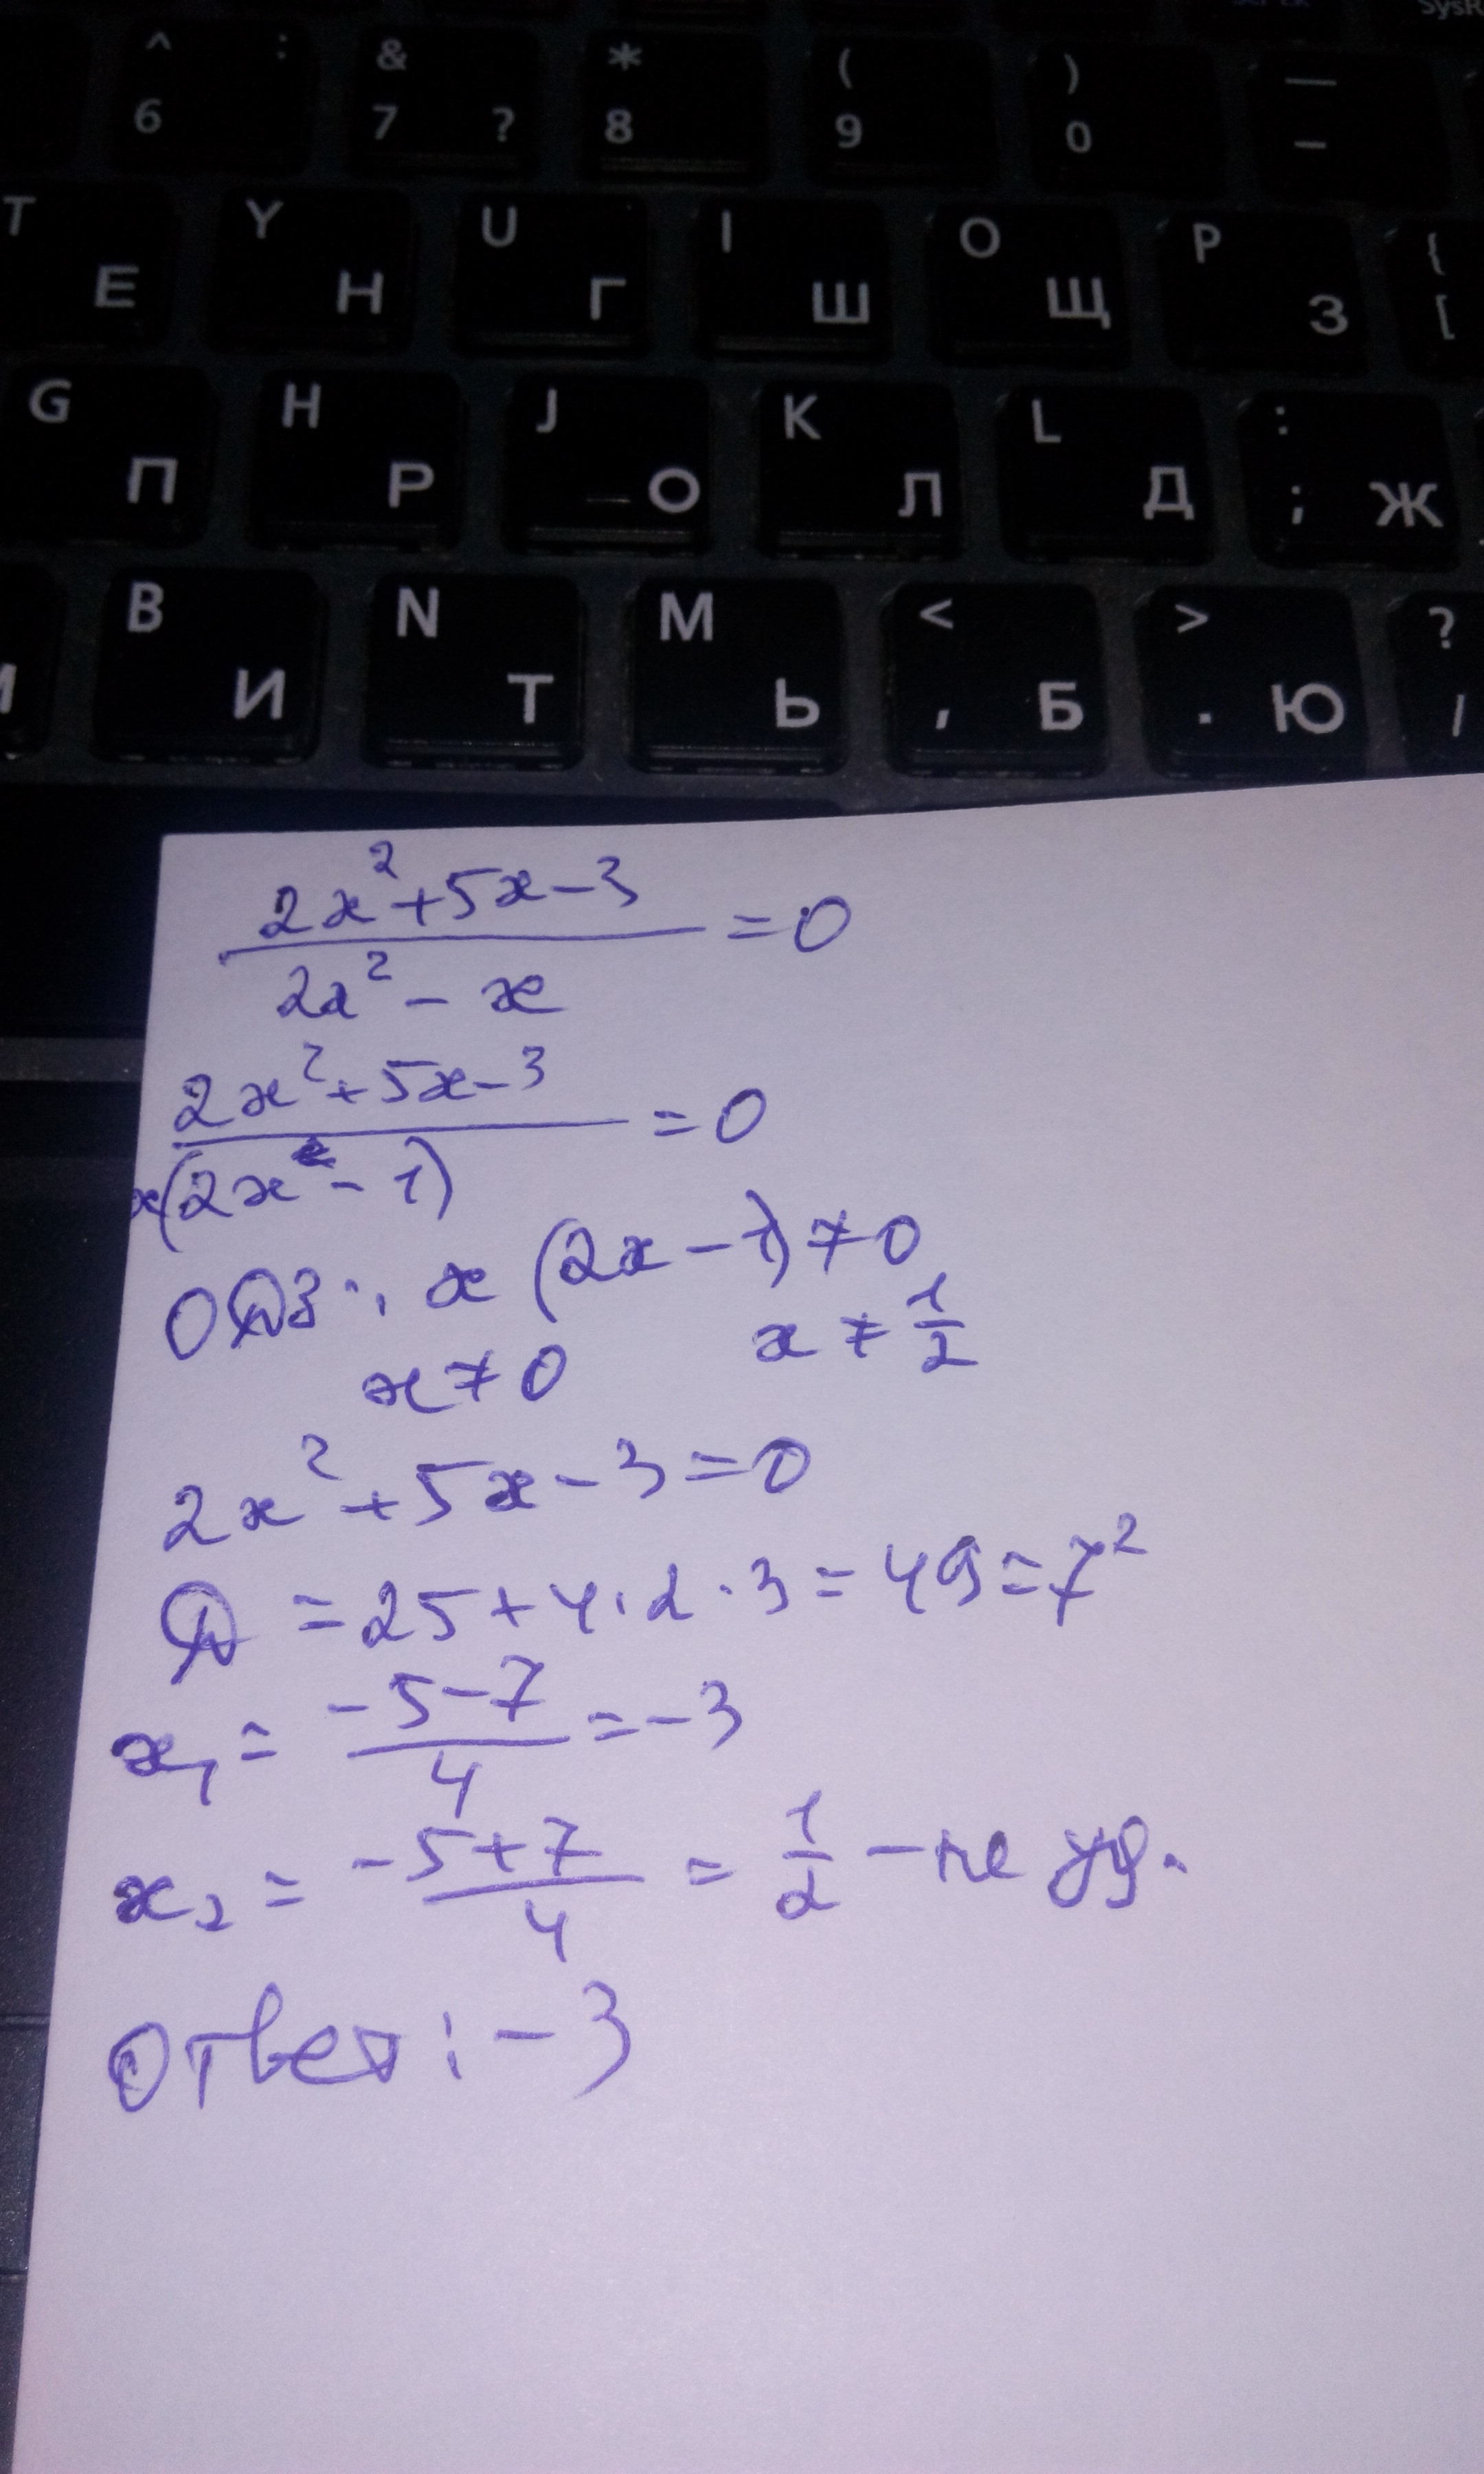 SysR
^ :
6
&
7 ?
*
8
(
9
)
0
—
–
T Е
Y Н
U Г
I Ш
O Щ
P З
{
[
G П
H Р
J О
K Л
L Д
: ; Ж
B И
N Т
M Ь
< , Б
> . Ю
? /
2x²+5x-3
/ 2x² - x = 0
2x²+5x-3
/ x(2x - 1) = 0
ОДЗ: x (2x - 1) ≠ 0
x ≠ 0 x ≠ 1/2
2x² + 5x - 3 = 0
Д = 25 + 4·2·3 = 49 = 7²
x₁ = (-5-7)/4 = -3
x₂ = (-5+7)/4 = 1/2 - не уд.
Ответ: -3